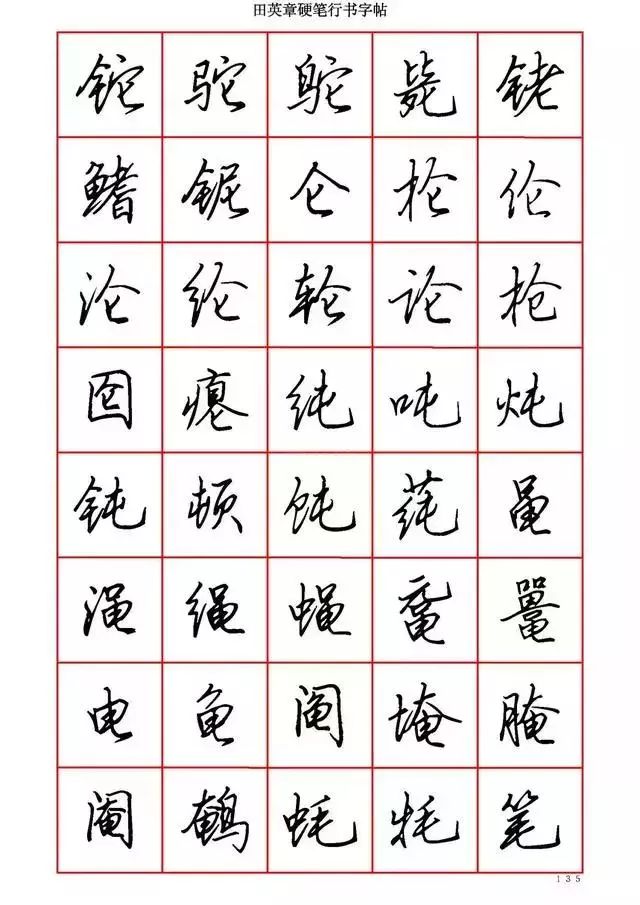 田英章硬笔行书字帖
铊 驼 鸵 毙 铑
鳍 铌 仑 伦
沦 纶 轮 论
囵 瘪 纯 吨 炖
钝 顿 饨 莼 黾
渑 绳 蝇 鼋 鼍
电 龟 阄 埯 腌
阉 鹌 蚝 牦 笔
135